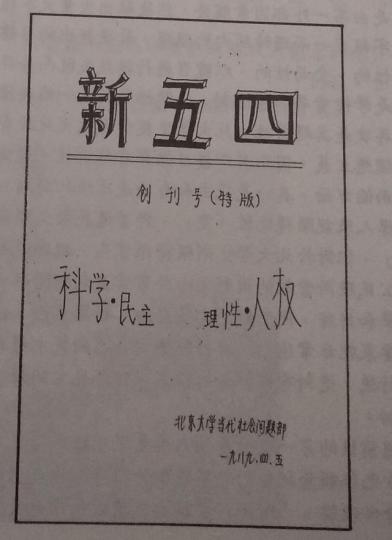 新五四
创刊号(特版)
科学·民主 理性·人权
北京大学当代社会问题部
一九八九.四.五